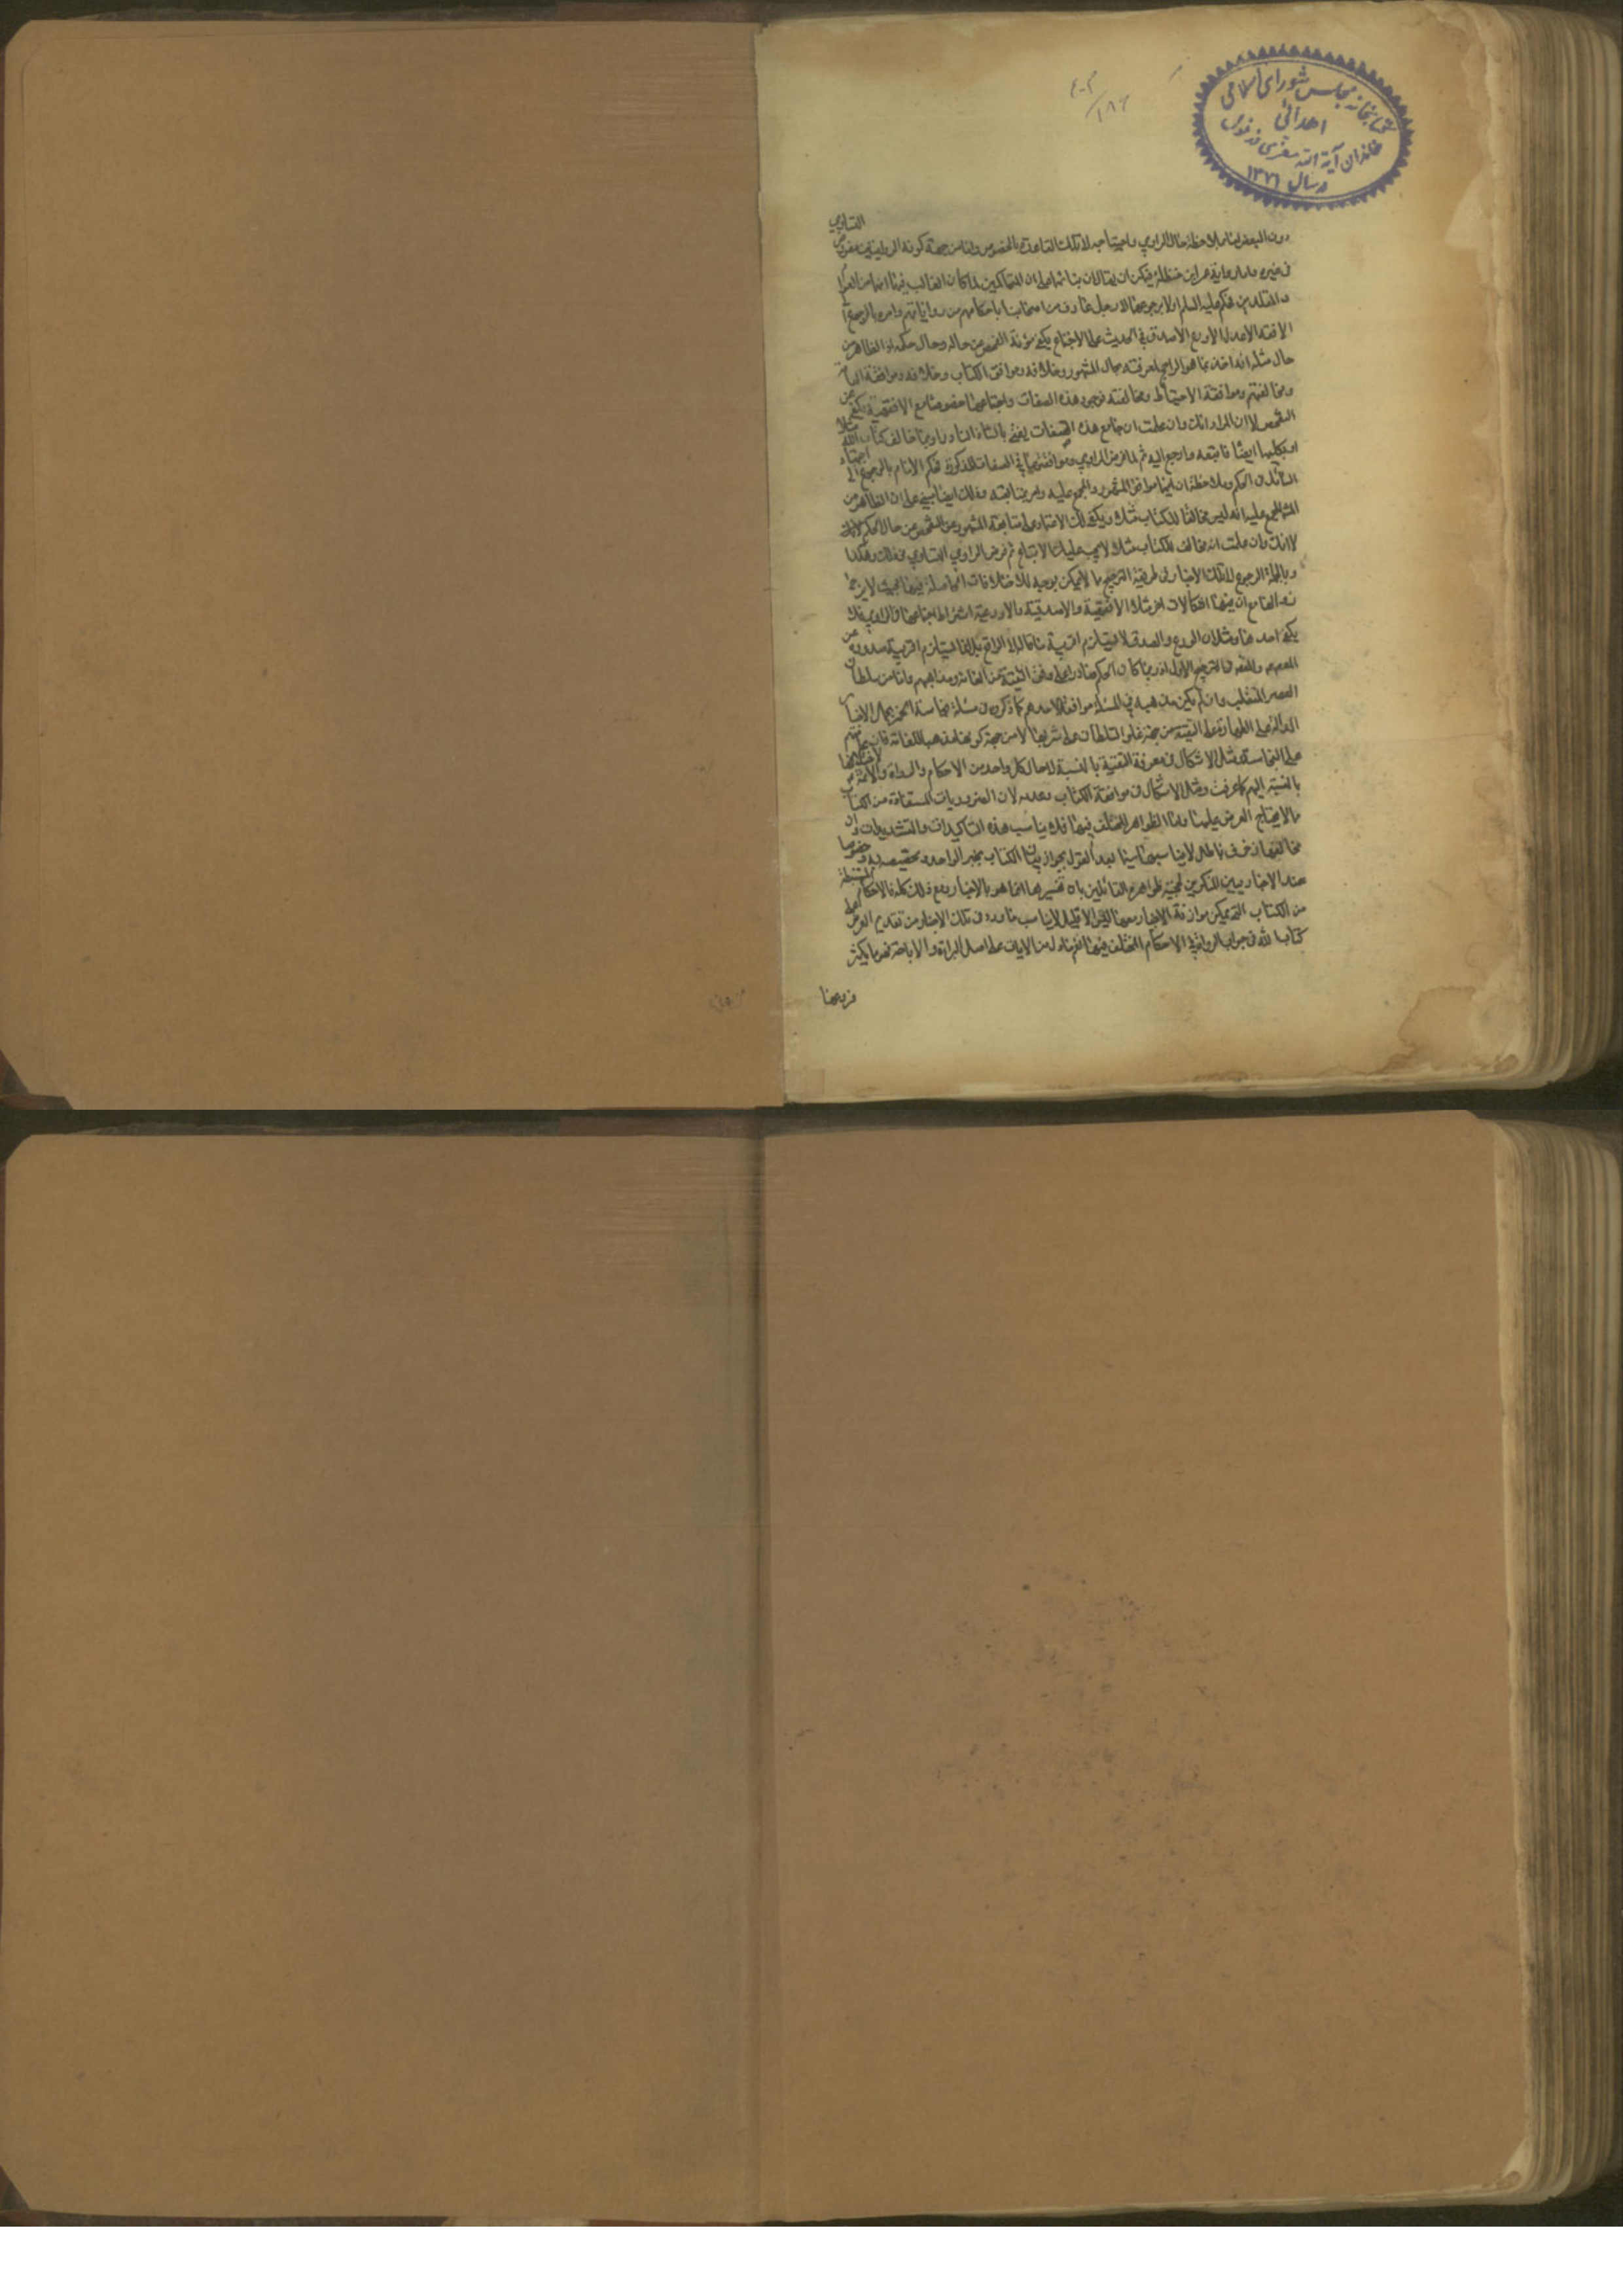 كتابخانه مجلس شورای اسلامی
اهدائی
خاندان آیة الله
در سال ۱۳۷۱
التساوي
دون البعض اما ملاحظة حال الراوي واحتياجه لا تلك القاعدة بالخصوص واما من جهة كونه الروايتين
في غيره واما رواية عمر ابن حنظلة فيمكن ان يقال ان بنائها على ان المتحاكمين لما كان الغالب فيهما انهما من العوام
والمقلدين فحكم عليه السلام اولا برجوعهما لا رجل عارف من اصحابنا باحكامهم من رواياتهم وامره بالرجوع
الافقه الاعدل الاورع الاصدق في الحديث على الاجتماع يكفي مؤنة الفحص عن حاله وحال حكمه اذ الظاهر من
حال مثله انه اخذ بما هو الراجح لمعرفته بحال المشهور وخلافه وموافق الكتاب وخلافه وموافقة العامة
ومخالفتهم وموافقة الاحتياط ومخالفته فوجود هذه الصفات واجتماعها خصوصا مع الافقهية يكفي عن
الفحص لا ان المراد انك وان علمت ان جامع هذه الصفات يفتي بالشاذ النادر او بما خالف كتاب الله مثلا
او بكليهما ايضا فاتبعه وارجع اليه ثم لما فرض الراوي موافقتهما في الصفات المذكورة فحكم الامام بالرجوع الى
السائل في الحكم وملاحظة ان ايهما موافق المشهور والمجمع عليه وامر بمتابعته وذلك ايضا مبني على ان الظاهر من
المجمع عليه انه ليس مخالفا للكتاب مثلا ويكفي لك الاعتماد على متابعة المشهور عن الفحص عن حال الحكم
لا انك وان علمت انه مخالف للكتاب مثلا يجب عليك الاتباع ثم فرض الراوي التساوي في ذلك وهكذا
وبالجملة الرجوع لا تلك الاخبار في طريقة الترجيح ما لا يمكن توجيهه للاختلافات الحاصلة فيها بحيث لا يرجى
مع ان فيها اشكالات اخر مثل الافقهية والاصدقية والاورعية اشتراط اجتماعها في الراوي فلا
يكفي احدها ومثل ان الورع والصدق لا يستلزم اقربية ما قالا لا الواقع بل انما يستلزم اقربية صدوره عن
المعصوم والمقصود في الترجيح الاول اذ ربما كان الحكم صادرا على وفق التقية عن العامة ومذاهبهم واما من سلطان
العصر المتغلب وان لم يكن مذهبه في المسئلة موافقا لاحدهم كما ذكروه في مسئلة نجاسة الخمر بحمل الاخبار
الدالة على الطهارة على التقية من جهة غلو السلطان على شربها لا من جهة كونها مذهبا للعامة فان علمائهم
على النجاسة ومثل الاشكال في معرفة التقية بالنسبة لا حال كل واحد من الاحكام والرواة والائمة
بالنسبة اليهم كما عرفت ومثل الاشكال في موافقة الكتاب وعدمه لان الضروريات المستفادة من الكتاب
ما لا يحتاج العرض عليها واما الظواهر المختلف فيها فلا يناسب هذه التاكيدات والتشديدات وان
مخالفها زخرف باطل لا يناسبها سيما بعد القول بجواز بيان الكتاب بخبر الواحد وتخصيصه به خصوصا
عند الاخباريين المنكرين لحجية ظواهره القائلين بان تفسيرها انما هو بالاخبار ومع ذلك كله فالاحكام المستنبطة
من الكتاب التي يمكن موازنة الاخبار معها ليس الا قليلا لا يناسب ما ورد في تلك الاخبار من تقديم العرض على
كتاب الله في جواب الرواة في الاحكام المختلف فيها نعم ما دل من الايات على اصل البراءة والاباحة نعم ما يكثر
فروعها